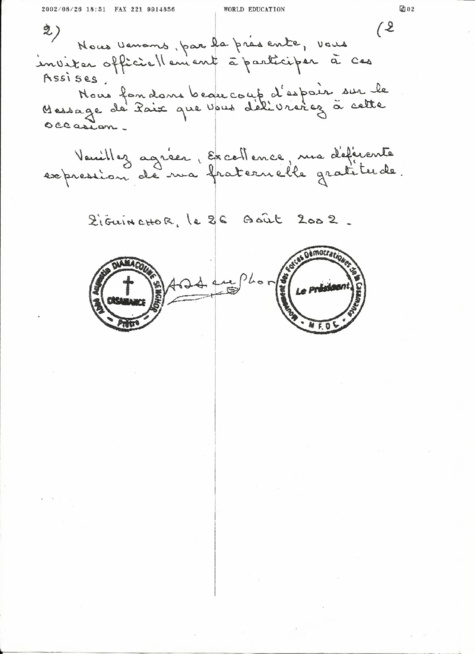 2002/08/28 18:51 FAX 221 9914856 WORLD EDUCATION 02
2) (2
Nous venons, par la présente, vous
inviter officiellement à participer à ces
Assises.
Nous fondons beaucoup d'espoir sur le
Message de Paix que vous délivrerez à cette
occasion.
Veuillez agréer, Excellence, ma déférente
expression de ma fraternelle gratitude.
ZIGUINCHOR, le 26 Août 2002.
Abbé Augustin DIAMACOUNE SENGHOR
CASAMANCE
- Prêtre -
Mouvement des Forces Démocratiques de la Casamance
Le Président
- M F D C -